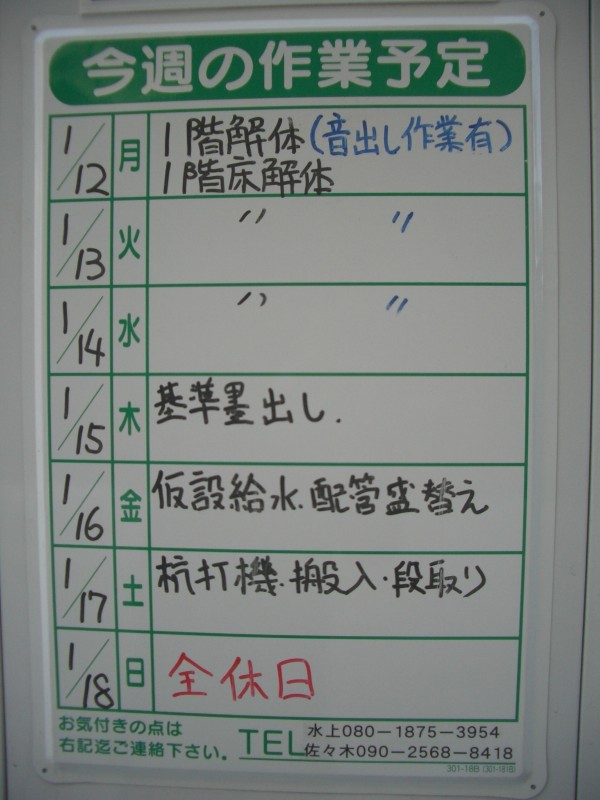 今週の作業予定
1/12 月 1階解体(音出し作業有)
1階床解体
1/13 火 〃 〃
1/14 水 〃 〃
1/15 木 基準墨出し.
1/16 金 仮設給水.配管盛替え
1/17 土 杭打機.搬入.段取り
1/18 日 全休日
お気付きの点は
右記迄ご連絡下さい。 TEL
水上080-1875-3954
佐々木090-2568-8418
301-18B (301-181B)